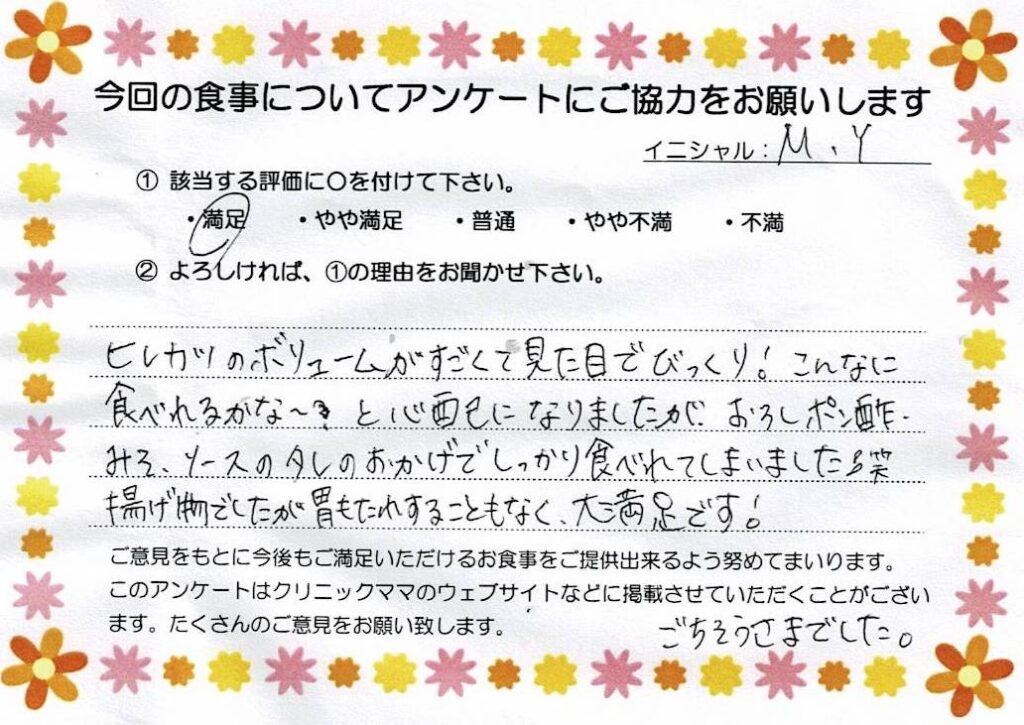 今回の食事についてアンケートにご協力をお願いします
イニシャル：M.Y
① 該当する評価に〇を付けて下さい。
・満足 ・やや満足 ・普通 ・やや不満 ・不満
② よろしければ、①の理由をお聞かせ下さい。
ヒレカツのボリュームがすごくて見た目でびっくり！こんなに
食べれるかな〜？と心配になりましたが、おろしポン酢・
みそ、ソースのタレのおかげでしっかり食べれてしまいました笑
揚げ物でしたが胃もたれすることもなく、大満足です！
ご意見をもとに今後もご満足いただけるお食事をご提供出来るよう努めてまいります。
このアンケートはクリニックママのウェブサイトなどに掲載させていただくことがござい
ます。たくさんのご意見をお願い致します。
ごちそうさまでした。